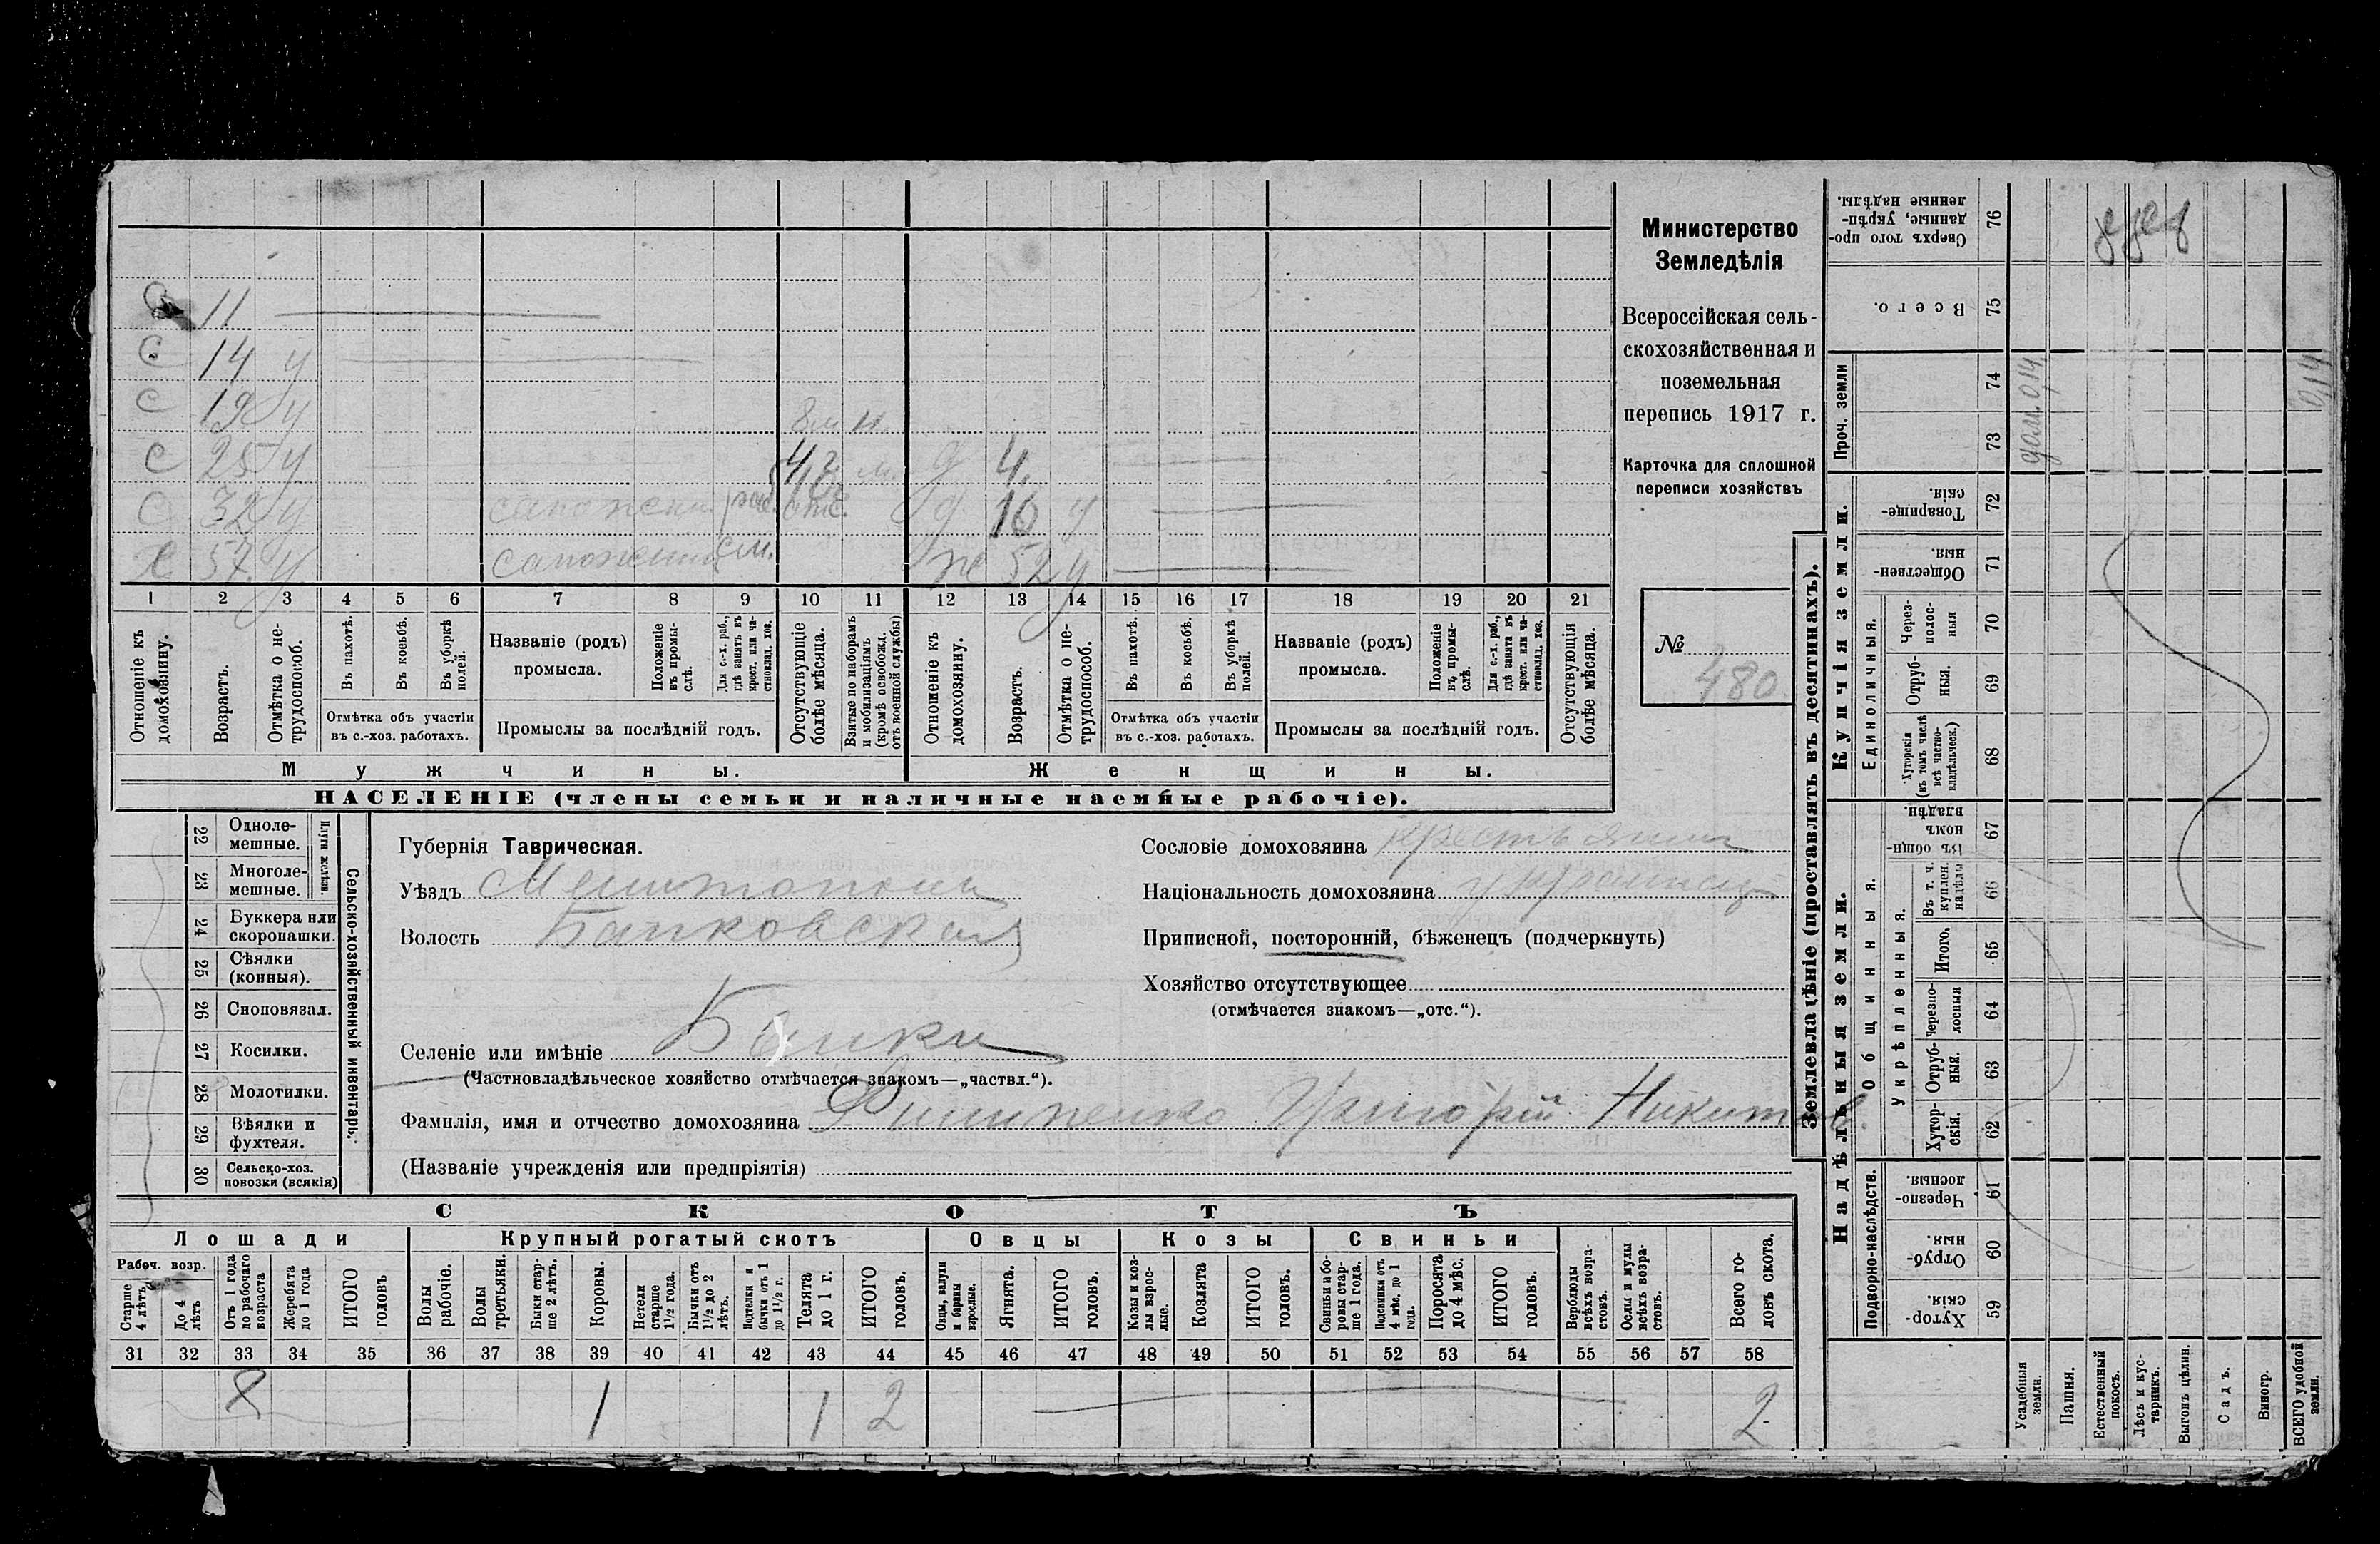 Министерство
Земледѣлія
Всероссійская сель-
скохозяйственная и
поземельная
перепись 1917 г.
Карточка для сплошной
переписи хозяйствъ
№
480
С 11
С 14 у
С 19 у
8 м
С 25 у 4 г. д 4
С 32 у сапожник отс. д 16 у
х 57 у сапожник ж 52 у
1 2 3 4 5 6 7 8 9 10 11 12 13 14 15 16 17 18 19 20 21
Отношеніе къ домохозяину.
Возрастъ.
Отмѣтка о не-трудоспособ.
Въ пахотѣ.
Въ косьбѣ.
Въ уборкѣ полей.
Отмѣтка объ участіи
въ с.-хоз. работахъ.
Названіе (родъ)
промысла.
Положеніе въ промы-слѣ.
Для с.-х. раб., гдѣ занятъ въ крест. или ча-стновлад. хоз.
Промыслы за послѣдній годъ.
Отсутствующіе болѣе мѣсяца.
Взятые по наборамъ и мобилизаціямъ (кромѣ освобожд. отъ военной службы)
Отношеніе къ домохозяину.
Возрастъ.
Отмѣтка о не-трудоспособ.
Въ пахотѣ.
Въ косьбѣ.
Въ уборкѣ полей.
Отмѣтка объ участіи
въ с.-хоз. работахъ.
Названіе (родъ)
промысла.
Положеніе въ промы-слѣ.
Для с.-х. раб., гдѣ занята въ крест. или ча-стновлад. хоз.
Промыслы за послѣдній годъ.
Отсутствующія болѣе мѣсяца.
Мужчины. Женщины.
НАСЕЛЕНІЕ (члены семьи и наличные наемные рабочіе).
Сельско-хозяйственный инвентарь.
Плуги желѣзн.
22 Одноле-мешные.
23 Многоле-мешные.
24 Буккера или скоропашки.
25 Сѣялки (конныя).
26 Сноповязал.
27 Косилки.
28 Молотилки.
29 Вѣялки и фухтеля.
30 Сельско-хоз. повозки (всякія)
Губернія Таврическая.
Уѣздъ Мелитопольск
Волость Банковская
Селеніе или имѣніе Банки
(Частновладѣльческое хозяйство отмѣчается знакомъ—„частвл.“).
Фамилія, имя и отчество домохозяина Филипенко Григорій Никитов.
(Названіе учрежденія или предпріятія)
Сословіе домохозяина крестьянин
Національность домохозяина украинец
Приписной, посторонній, бѣженецъ (подчеркнуть)
Хозяйство отсутствующее
(отмѣчается знакомъ—„отс.“).
СКОТЪ
Лошади Крупный рогатый скотъ Овцы Козы Свиньи
Рабоч. возр.
Старше 4 лѣтъ
До 4 лѣтъ
Отъ 1 года до рабочаго возраста
Жеребята до 1 года
ИТОГО головъ
Волы рабочіе.
Волы третьяки.
Быки стар-ше 2 лѣтъ.
Коровы.
Нетели старше 1½ года.
Бычки отъ 1½ до 2 лѣтъ.
Подтелки и бычки отъ 1 до 1½ г.
Телята до 1 г.
ИТОГО головъ.
Овцы, валухи и бараны взрослые.
Ягнята.
ИТОГО головъ.
Козы и коз-лы взрос-лые.
Козлята
ИТОГО головъ.
Свиньи и бо-ровы стар-ше 1 года.
Подсвинки отъ 4 мѣс. до 1 года.
Поросята до 4 мѣс.
ИТОГО головъ.
Верблюды всѣхъ возра-стовъ.
Ослы и мулы всѣхъ возра-стовъ.
Всего го-ловъ скота.
31 32 33 34 35 36 37 38 39 40 41 42 43 44 45 46 47 48 49 50 51 52 53 54 55 56 57 58
1 1 2 2
Землевладѣніе (проставлять въ десятинахъ).
Надѣльныя земли. Купчія земли. Проч. земли
Подворно-наслѣдств.
Общинныя.
Укрѣпленныя.
Единоличныя.
59 Хутор-скія.
60 Отруб-ныя.
61 Черезпо-лосныя.
62 Хутор-скія.
63 Отруб-ныя.
64 Черезпо-лосныя
65 Итого.
66 Въ т. ч. куплен. надѣлы
67 Въ общин-номъ владѣн.
68 Хуторскія (въ томъ числѣ всѣ частно-владѣльческ.)
69 Отруб-ныя.
70 Через-полос-ныя
71 Обществен-ныя.
72 Товарище-скія.
73
74
75 Всего.
76 Сверхъ того про-данные, укрѣп-ленные надѣлы.
Усадебныя земли.
Пашня.
Естественный покосъ.
Лѣсъ и кус-тарникъ.
Выгонъ цѣлин.
Садъ.
Виногр.
ВСЕГО удобной земли.
0,14
0,14